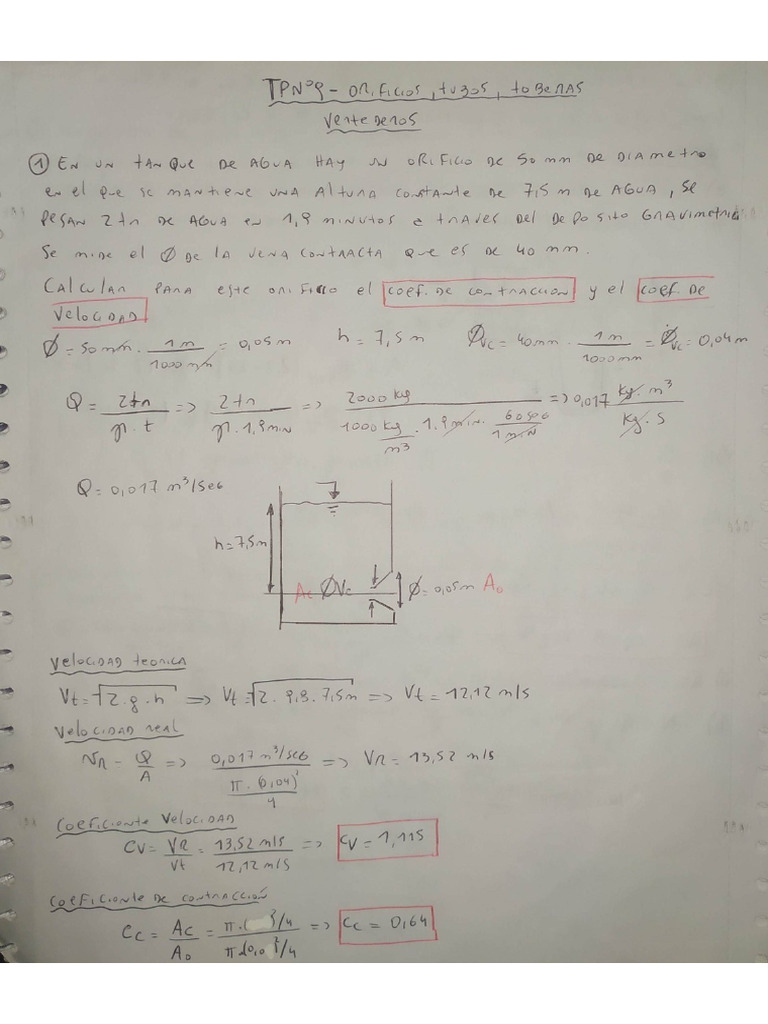 TPNº9 - ORIFICIOS, tuBOS, tOBERAS
VERTEDEROS
① EN UN TANQUE DE AGUA HAY UN ORIFICIO DE 50 mm DE DIAMETRO
EN EL QUE SE MANTIENE UNA ALTURA CONSTANTE DE 7,5 m DE AGUA, SE
PESAN 2tn DE AGUA EN 1,9 MINUTOS A TRAVES DEL DEPOSITO GRAVIMETRICO
SE MIDE EL Ø DE LA VENA CONTRACTA QUE ES DE 40 mm.
CALCULAR PARA ESTE ORIFICIO EL COEF. DE CONTRACCION Y EL COEF. DE
VELOCIDAD
Ø = 50 mm · 1m/1000 mm = 0,05 m h = 7,5 m Øvc = 40mm · 1m/1000mm = Øvc = 0,04 m
Q = 2tn/ρ·t => 2tn/ρ·1,9MIN => 2000 kg/(1000 kg/m³ · 1,9 min · 60seg/1min) => 0,017 kg·m³/kg·s
Q = 0,017 m³/SEG
h = 7,5m
Ac ØVc Ø = 0,05m Ao
VELOCIDAD TEORICA
Vt = √2·g·h => Vt = √2·9,8·7,5m => Vt = 12,12 m/s
VELOCIDAD REAL
VR = Q/A => 0,017 m³/seg/(π·(0,04)²/4) => VR = 13,52 m/s
COEFICIENTE VELOCIDAD
CV = VR/Vt = 13,52 m/s/12,12 m/s => CV = 1,115
COEFICIENTE DE CONTRACCIÓN
Cc = Ac/Ao = π·( )²/4/π·(0,0 )²/4 => Cc = 0,64